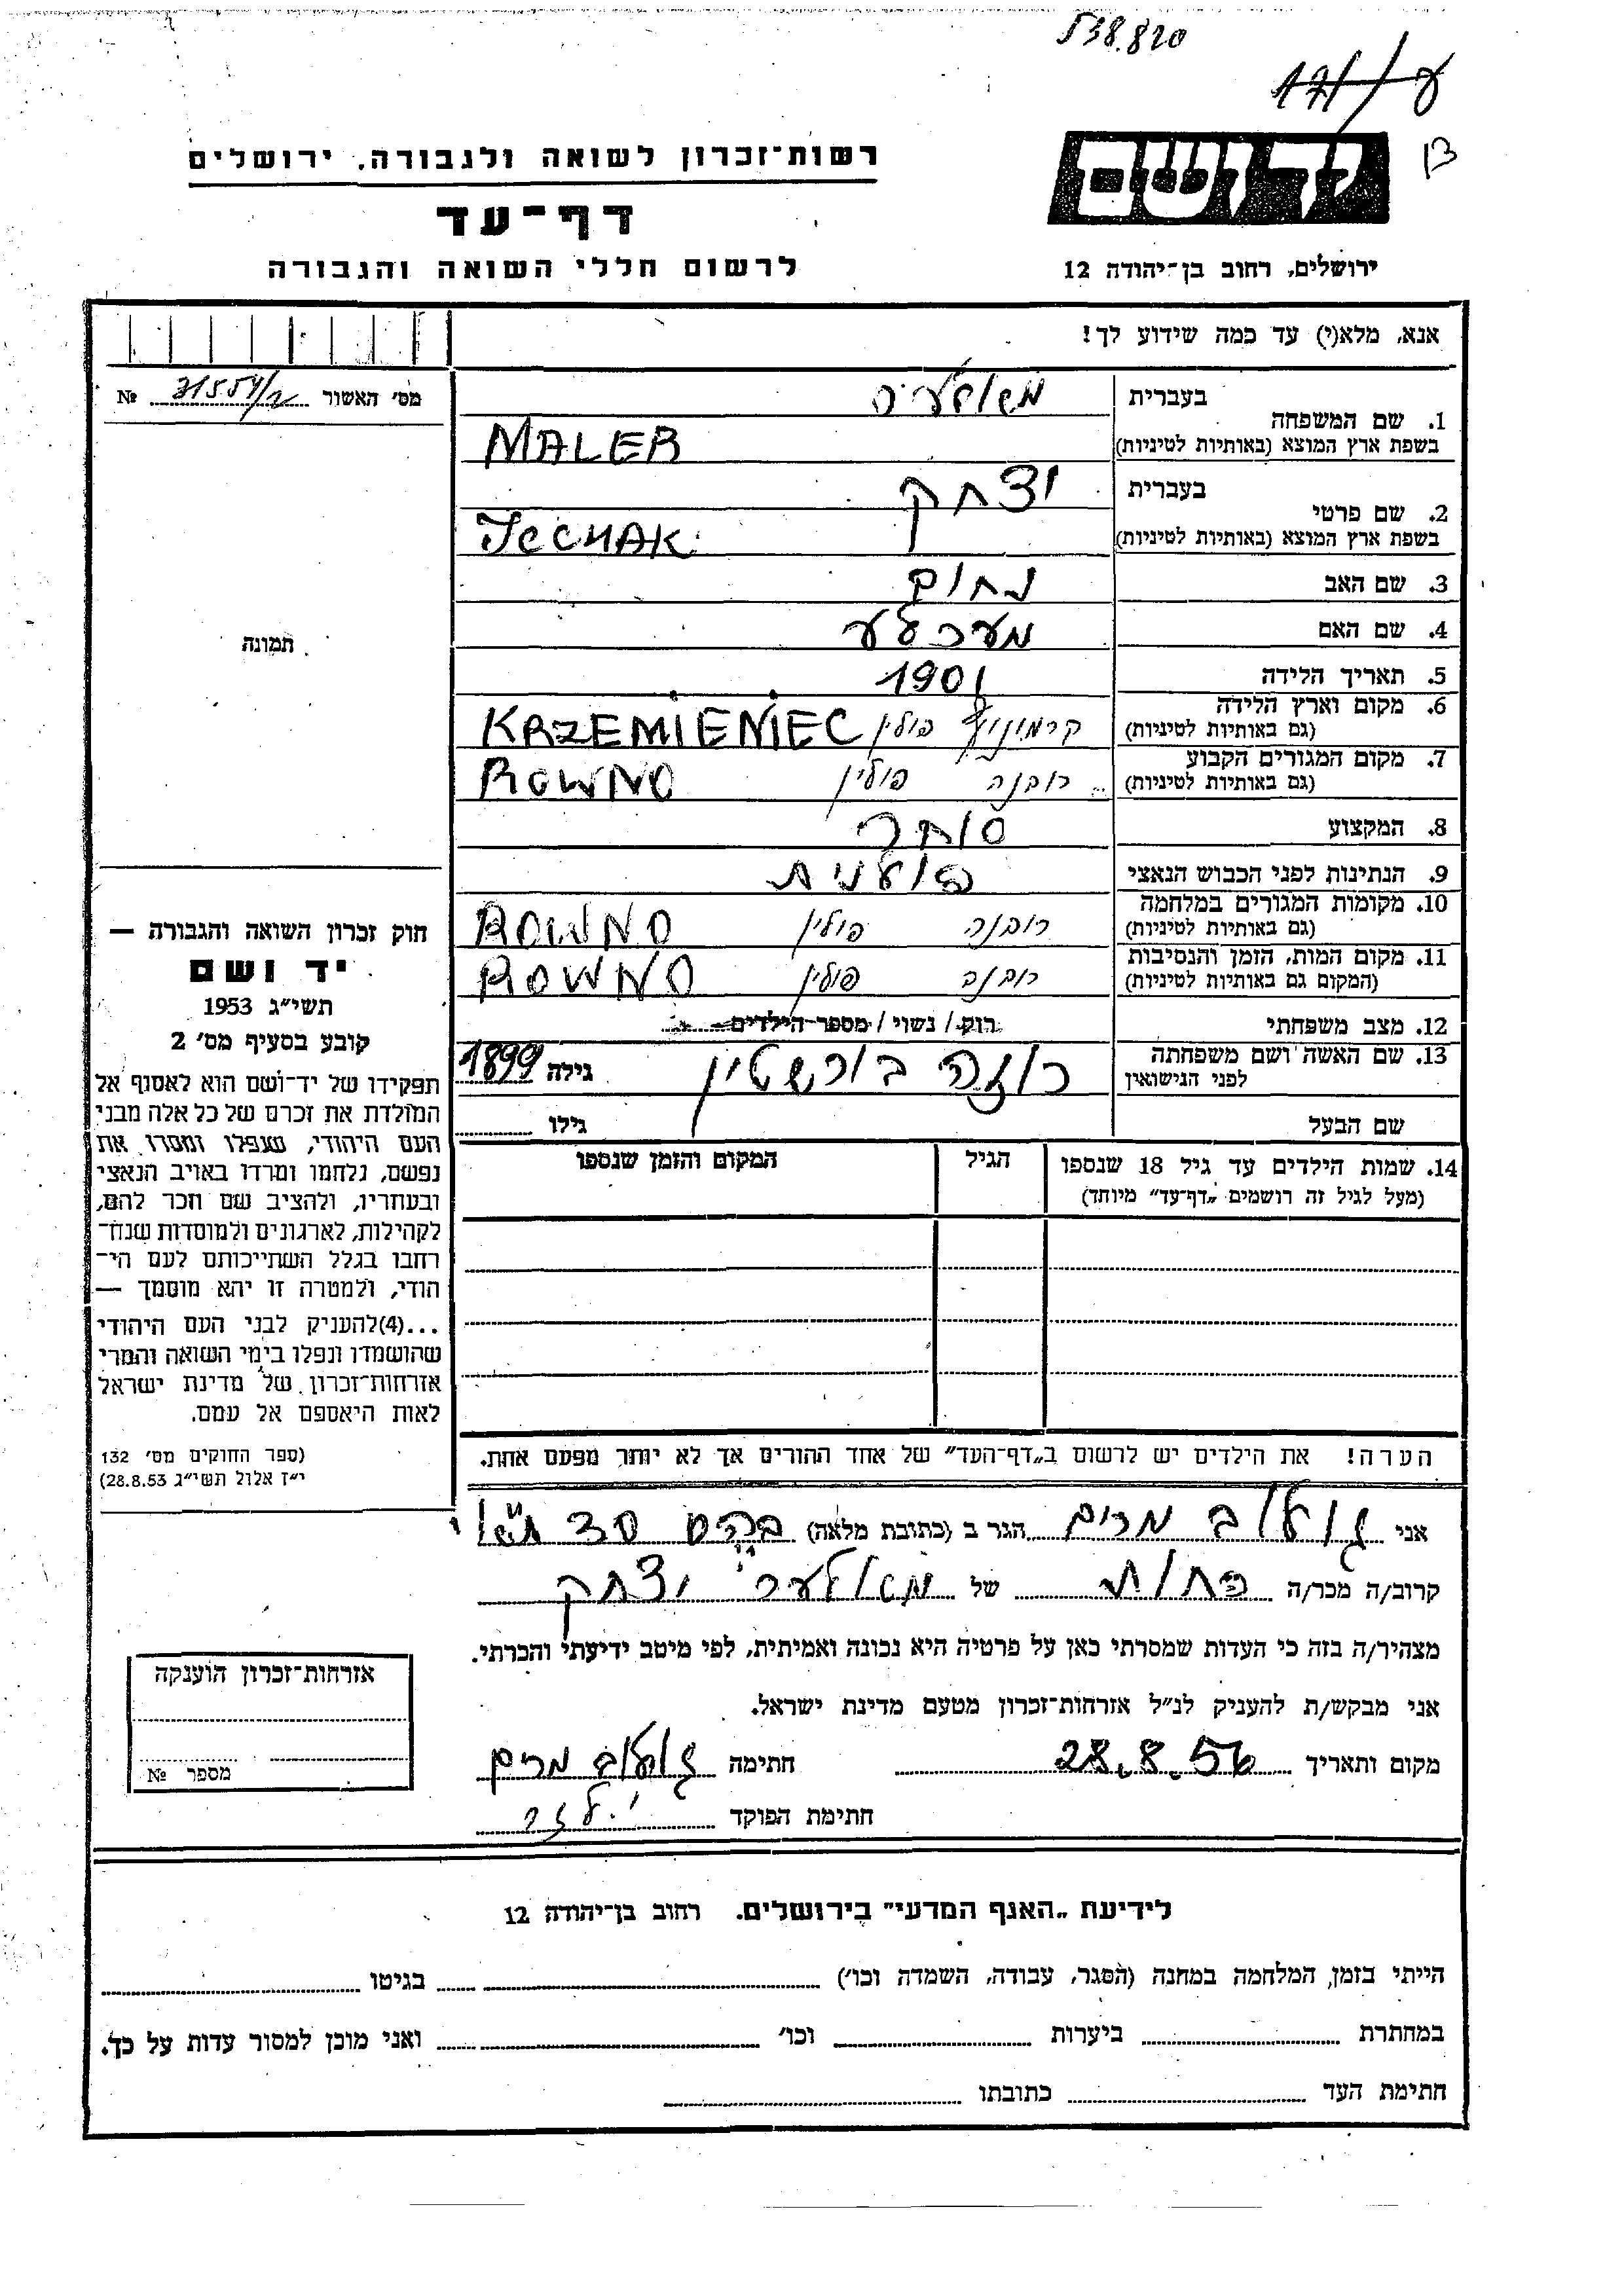 538.820
רשות־זכרון לשואה ולגבורה, ירושלים
יד ושם
דף־עד
לרשום חללי השואה והגבורה
ירושלים, רחוב בן־יהודה 12
אנא, מלא(י) עד כמה שידוע לך!
מס׳ האשור № 
1. שם המשפחה
בעברית
בשפת ארץ המוצא (באותיות לטיניות) MALER
2. שם פרטי
בעברית יצחק
בשפת ארץ המוצא (באותיות לטיניות) ICCHAK
3. שם האב נחום
4. שם האם
5. תאריך הלידה 1901
6. מקום וארץ הלידה
(גם באותיות לטיניות) פולין KRZEMIENIEC
7. מקום המגורים הקבוע
(גם באותיות לטיניות) רובנה פולין ROWNO
8. המקצוע סוחר
9. הנתינות לפני הכבוש הנאצי
10. מקומות המגורים במלחמה
(גם באותיות לטיניות) רובנה פולין ROWNO
11. מקום המות, הזמן והנסיבות
(המקום גם באותיות לטיניות) רובנה פולין ROWNO
12. מצב משפחתי רוק / נשוי / מספר הילדים
13. שם האשה ושם משפחתה
לפני הנישואין רוזה בורשטין גילה 1899
שם הבעל גילו
14. שמות הילדים עד גיל 18 שנספו
(מעל לגיל זה רושמים „דף־עד״ מיוחד)
הגיל
המקום והזמן שנספו
הערה! את הילדים יש לרשום ב„דף־העד״ של אחד ההורים אך לא יותר מפעם אחת.
תמונה
חוק זכרון השואה והגבורה —
יד ושם
תשי״ג 1953
קובע בסעיף מס׳ 2
תפקידו של יד־ושם הוא לאסוף אל
המולדת את זכרם של כל אלה מבני
העם היהודי, שנפלו ומסרו את
נפשם, נלחמו ומרדו באויב הנאצי
ובעוזריו, ולהציב שם וזכר להם,
לקהילות, לארגונים ולמוסדות שנח־
רבו בגלל השתייכותם לעם הי־
הודי, ולמטרה זו יהא מוסמך —
...(4)להעניק לבני העם היהודי
שהושמדו ונפלו בימי השואה והמרי
אזרחות־זכרון של מדינת ישראל
לאות היאספם אל עמם.
(ספר החוקים מס׳ 132
י״ז אלול תשי״ג 28.8.53)
אני מרים הגר ב (כתובת מלאה)
קרוב/ה מכר/ה של יצחק
מצהיר/ה בזה כי העדות שמסרתי כאן על פרטיה היא נכונה ואמיתית, לפי מיטב ידיעתי והכרתי.
אני מבקש/ת להעניק לנ״ל אזרחות־זכרון מטעם מדינת ישראל.
מקום ותאריך 28.8.56 חתימה מרים
חתימת הפוקד
אזרחות־זכרון הוענקה
מספר №
לידיעת „האגף המדעי״ בירושלים. רחוב בן־יהודה 12
הייתי בזמן המלחמה במחנה (הסגר, עבודה, השמדה וכו׳) בגיטו
במחתרת ביערות וכו׳ ואני מוכן למסור עדות על כך.
חתימת העד כתובתו